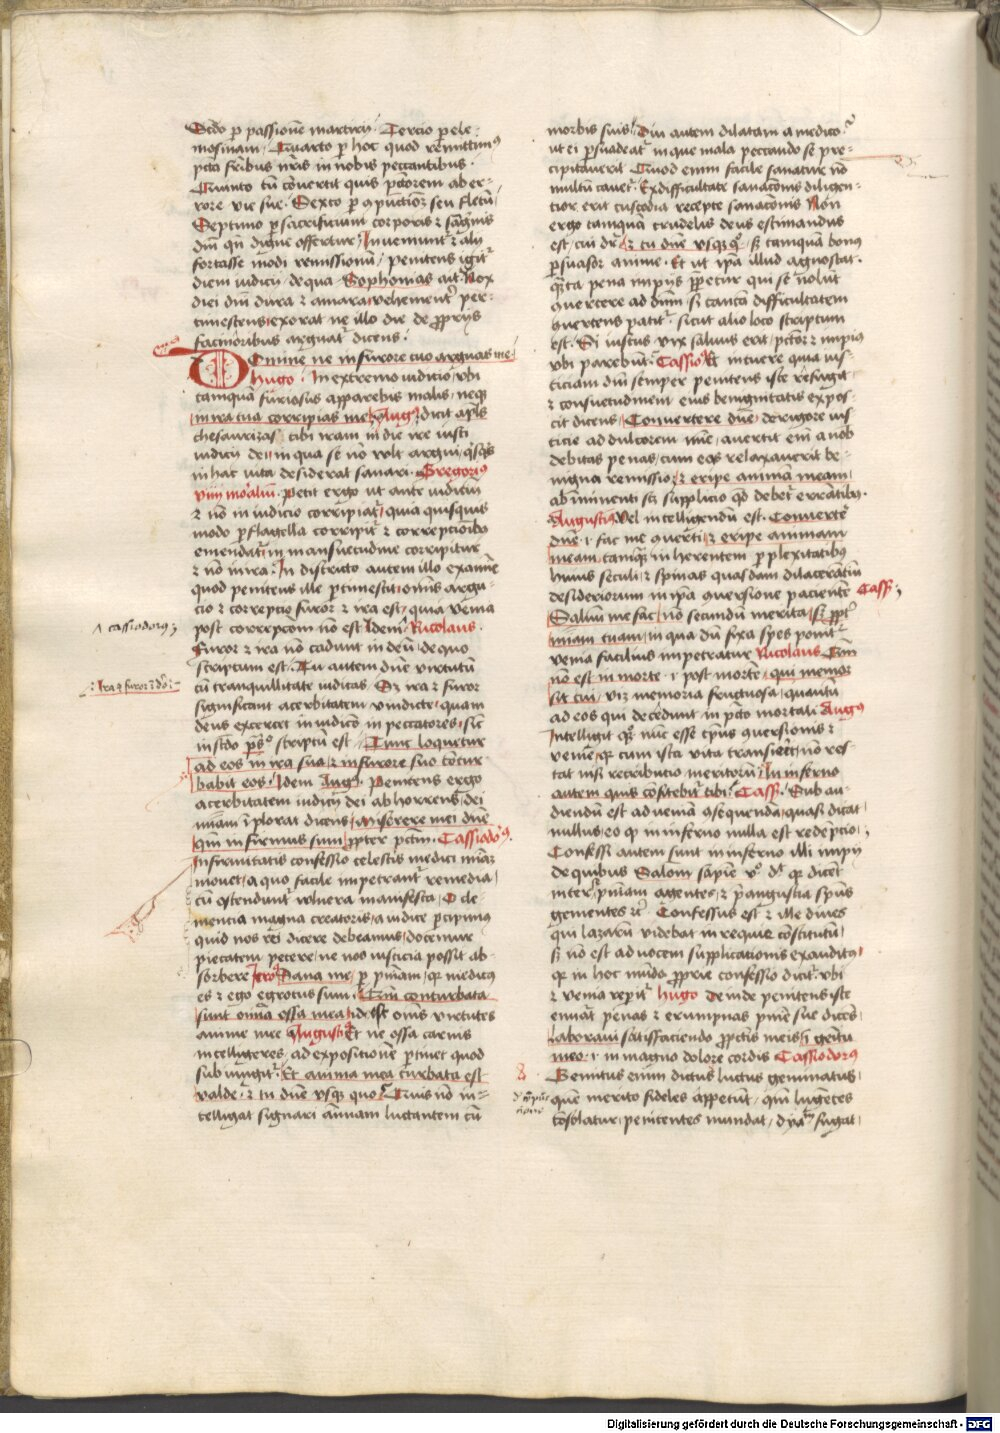 Scdo p passione martirij. Tercio p ele-
mosinam. Quarto p hoc quod remittimus
pctā fribus nris in nobis peccantibus.
Quinto cū conuertit quis pctorem ab er-
rore vie sue. Sexto p 9punctiōz seu fletū
Septimo p sacrificium corporis ⁊ sāgnis
dm̄ qn̄ digne offertur. Inueniunt᷑ ⁊ alij
fortasse modi remissionū, penitens igit᷑
diem iudicij de qua Sophonias ait. Vox
diei dn̄i dura ⁊ amara, vehement᷑ per-
timescens, exorat ne illo die de ꝓprijs
facinoribus arguat᷑ dicens.
Domine ne in furore tuo arguas me
Hugo. In extremo iudicio, vbi
tamquā furiosus apparebis malis, neq3
in ira tua corripias me. Aug9. dicit apls
thesaurizas tibi iram in die ire iusti
iudicij dei, in qua se nō volt argui, qsq3
in hac vita desiderat sanari. Gregorius
viiij moralium. Petit ergo ut ante iudiciū
⁊ nō in iudicio corripiat᷑, quia quisquis
modo p flagella corripit᷑ ⁊ correptioibus
emendat᷑, in mansuetudine corripitur
⁊ nō in ira. In districto autem illo examīe
quod penitens ille ptimescit, omnis argu-
cio ⁊ correptio furor ⁊ ira est, quia venia
post correpcōem nō est. Idem. Nicolaus.
Furor ⁊ ira nō cadunt in deū, de quo
scriptum est. Tu autem dn̄e virtutū
cū tranquillitate iudicas. Sz ira ⁊ furor
significant acerbitatem vindicte, quam
deus excercet in iudicio in peccatores, sic
in scdo ps° scriptū est. Tunc loquetur
ad eos in ira sua, ⁊ in furore suo contur
babit eos. Idem Aug9. Penitens ergo
acerbitatem iudicij dei abhorrens, dei
miam īplorat dicens, miserere mei dn̄e
qm̄ infirmus sum, ꝓpter pctm̄. Cassiodor9.
Infirmitatis confessio celestis medici miaz
mouet, a quo facile impetrant᷑ remedia,
cū ostendunt᷑ vulnera manifesta. O cle-
mencia magna creatoris, a iudice pcipimus
quid nos rei dicere debeamus, docemur
pietatem petere, ne nos iusticia possit ab-
sorbere. Jero9. Sana me, p pniam, qr medicus
es ⁊ ego egrotus sum. Qm̄ conturbata
sunt omīa ossa mea, id est om̄s virtutes
anime mee. Augusti9. Et ne ossa carnis
intelligeres, ad expositionē ptinet quod
subiungit᷑. Et anima mea turbata est
valde. ⁊ tu dn̄e vsq3 quo. Quis nō in-
telligat signari aīmam luctantem cū
∧ cassiodorus;
.: Ira ⁊ furor ī deo :.
morbis suis. Diu autem dilatam a medico,
ut ei psuadeat᷑ in que mala peccando se pre-
cipitauerit. Quod enim facile sanatur nō
multū cauet᷑. Ex difficultate sanacōnis diligen-
tior erit custodia recepte sanacōnis. Non
ergo tamquā crudelis deus estimandus
est, cui dr. ⁊ tu dn̄e vsq3 q°. sz tamquā bonus
psuasor anime. Et ut ipā illud agnoscat.
Quāta pena impijs ppetrur qui se nolūt
quertere ad dn̄m, si cantā difficultatem
quertens patit᷑. sicut alio loco scriptum
est. Si iustus vix saluus erit, pctor ⁊ impius
vbi parebunt. Cassio9. Et intuere quia ius-
ticiam dn̄i semper penitens iste refugit,
⁊ consuetudinem eius benignitatis expos-
cit dicens. Conuertere dn̄e de rigore ius
ticie ad dulcorem mie, auertit em̄ a nob
debitas penas, cum eas relaxauerit be-
nigna remissio, ⁊ eripe animā meam,
ab imminenti sc3 supplicio qd debet᷑ errātibus.
Augustin9. Vel intelligendū est. Conuerte
dn̄e i fac me querti, ⁊ eripe animam
meam, tamqz inherentem p plexitatibus
huius seculi, ⁊ spinas quasdam dilacerātiū
desideriorum in ipā quersione paciente. Cass9;
Saluū me fac, nō secundū merita, sz ppt᷑
miam tuam, in qua dū fixa spes ponit᷑
venia facilius impetratur. Nicolaus. Qm̄
nō est in morte .i. post morte, qui memor
sit tui, viz memoria fructuosa, quantū
ad eos qui decedunt in pctō mortali. Aug9
Intelligit quoqz nūc esse tpus quersionis ⁊
venie, qr cum ista vita transierit, nō res-
tat nisi retributio meritorū. In inferno
autem quis cōfitebit᷑ tibi. Cass9. Sub au-
diendū est ad veniā 9sequendā, quasi dicat,
nullus, eo qr in inferno nulla est redēptio;
Confessi autem sunt in inferno illi impij
de quibus Salom̄ sapīe v° dt qr dicēt
inter, pniam agentes, ⁊ p angustia spūs
gementes ⁊c. Confessus est ⁊ ille diues
qui lazarū videbat in requie cōstitutū,
sz nō est ad uocem supplicationis exauditus,
qr in hoc mūdo ꝓprie confessio dicit᷑. vbi
⁊ venia repit᷑. Hugo. Deinde penitens iste
enūat penas ⁊ erumpnas pnie sue dicens.
Laboraui satisfaciendo ꝓ pctis meis, ī gemitu
meo .i. in magno dolore cordis. Cassiodorus
Gemitus enim dictus luctus geminatus,
quē merito fideles appetunt, qm̄ lugētes
cōsolatur, penitentes mundat, dyabm̄ fugat,
Digitalisierung gefördert durch die Deutsche Forschungsgemeinschaft - DFG